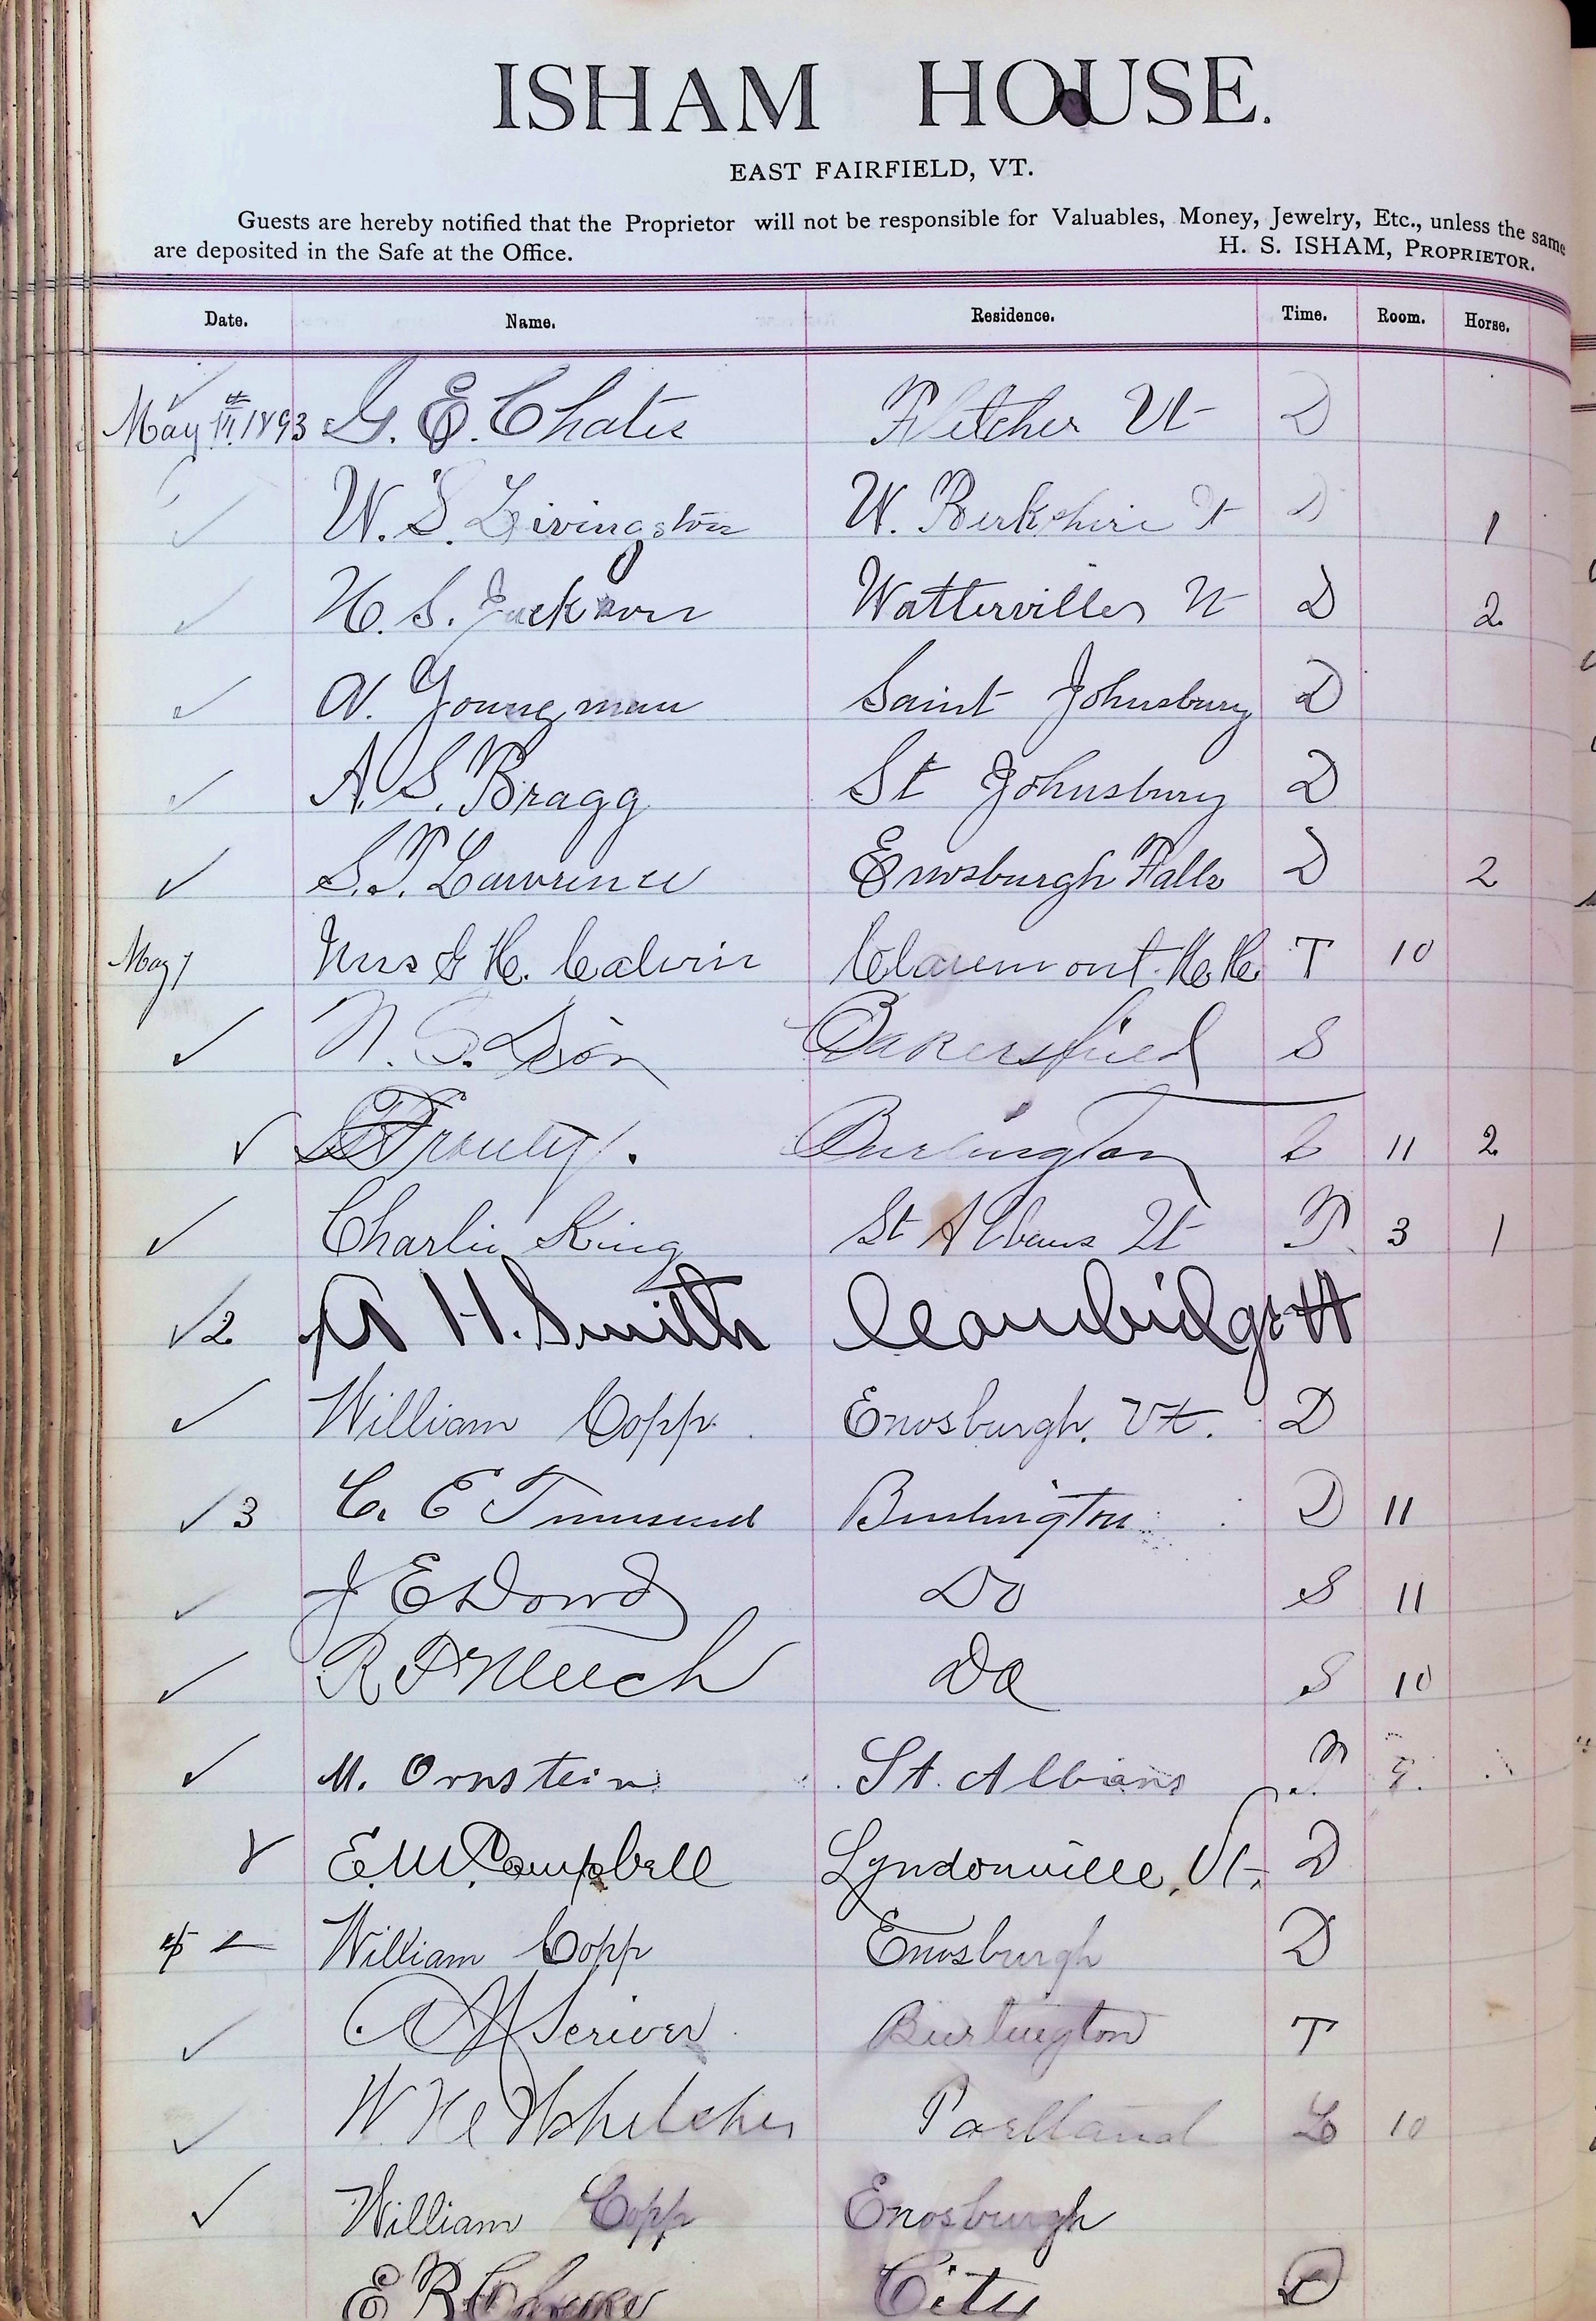 ISHAM HOUSE.
EAST FAIRFIELD, VT.
Guests are hereby notified that the Proprietor will not be responsible for Valuables, Money, Jewelry, Etc., unless the same
are deposited in the Safe at the Office. H. S. ISHAM, PROPRIETOR.
Date. Name. Residence. Time. Room. Horse.
May 1893 G. E. Chates Fletcher Vt D
W. S. Livingston W. Berkshire Vt D 1
H. S. Jackson Watterville Vt D 2
A. Youngman Saint Johnsbury D
A. S. Bragg St Johnsbury D
S. T. Lawrence Enosburgh Falls D 2
May 1 Mrs G H. Calvin Claremont. N. H. T 10
N. S. Dion Bakersfield S
Prouty. Burlington L 11 2
Charlie King St Albans Vt 3 1
2 A H. Smith Cambridge Vt
William Copp. Enosburgh. Vt. D
3 C. E Townsend Burlington D 11
J E Dowd Do S 11
R F Meech Do S 10
M. Ornstein St. Albans
E. W. Campbell Lyndonville, Vt. D
William Copp Enosburgh D
A H Scriver Burlington T
W H Whitcher Portland L 10
William Copp Enosburgh
E R City